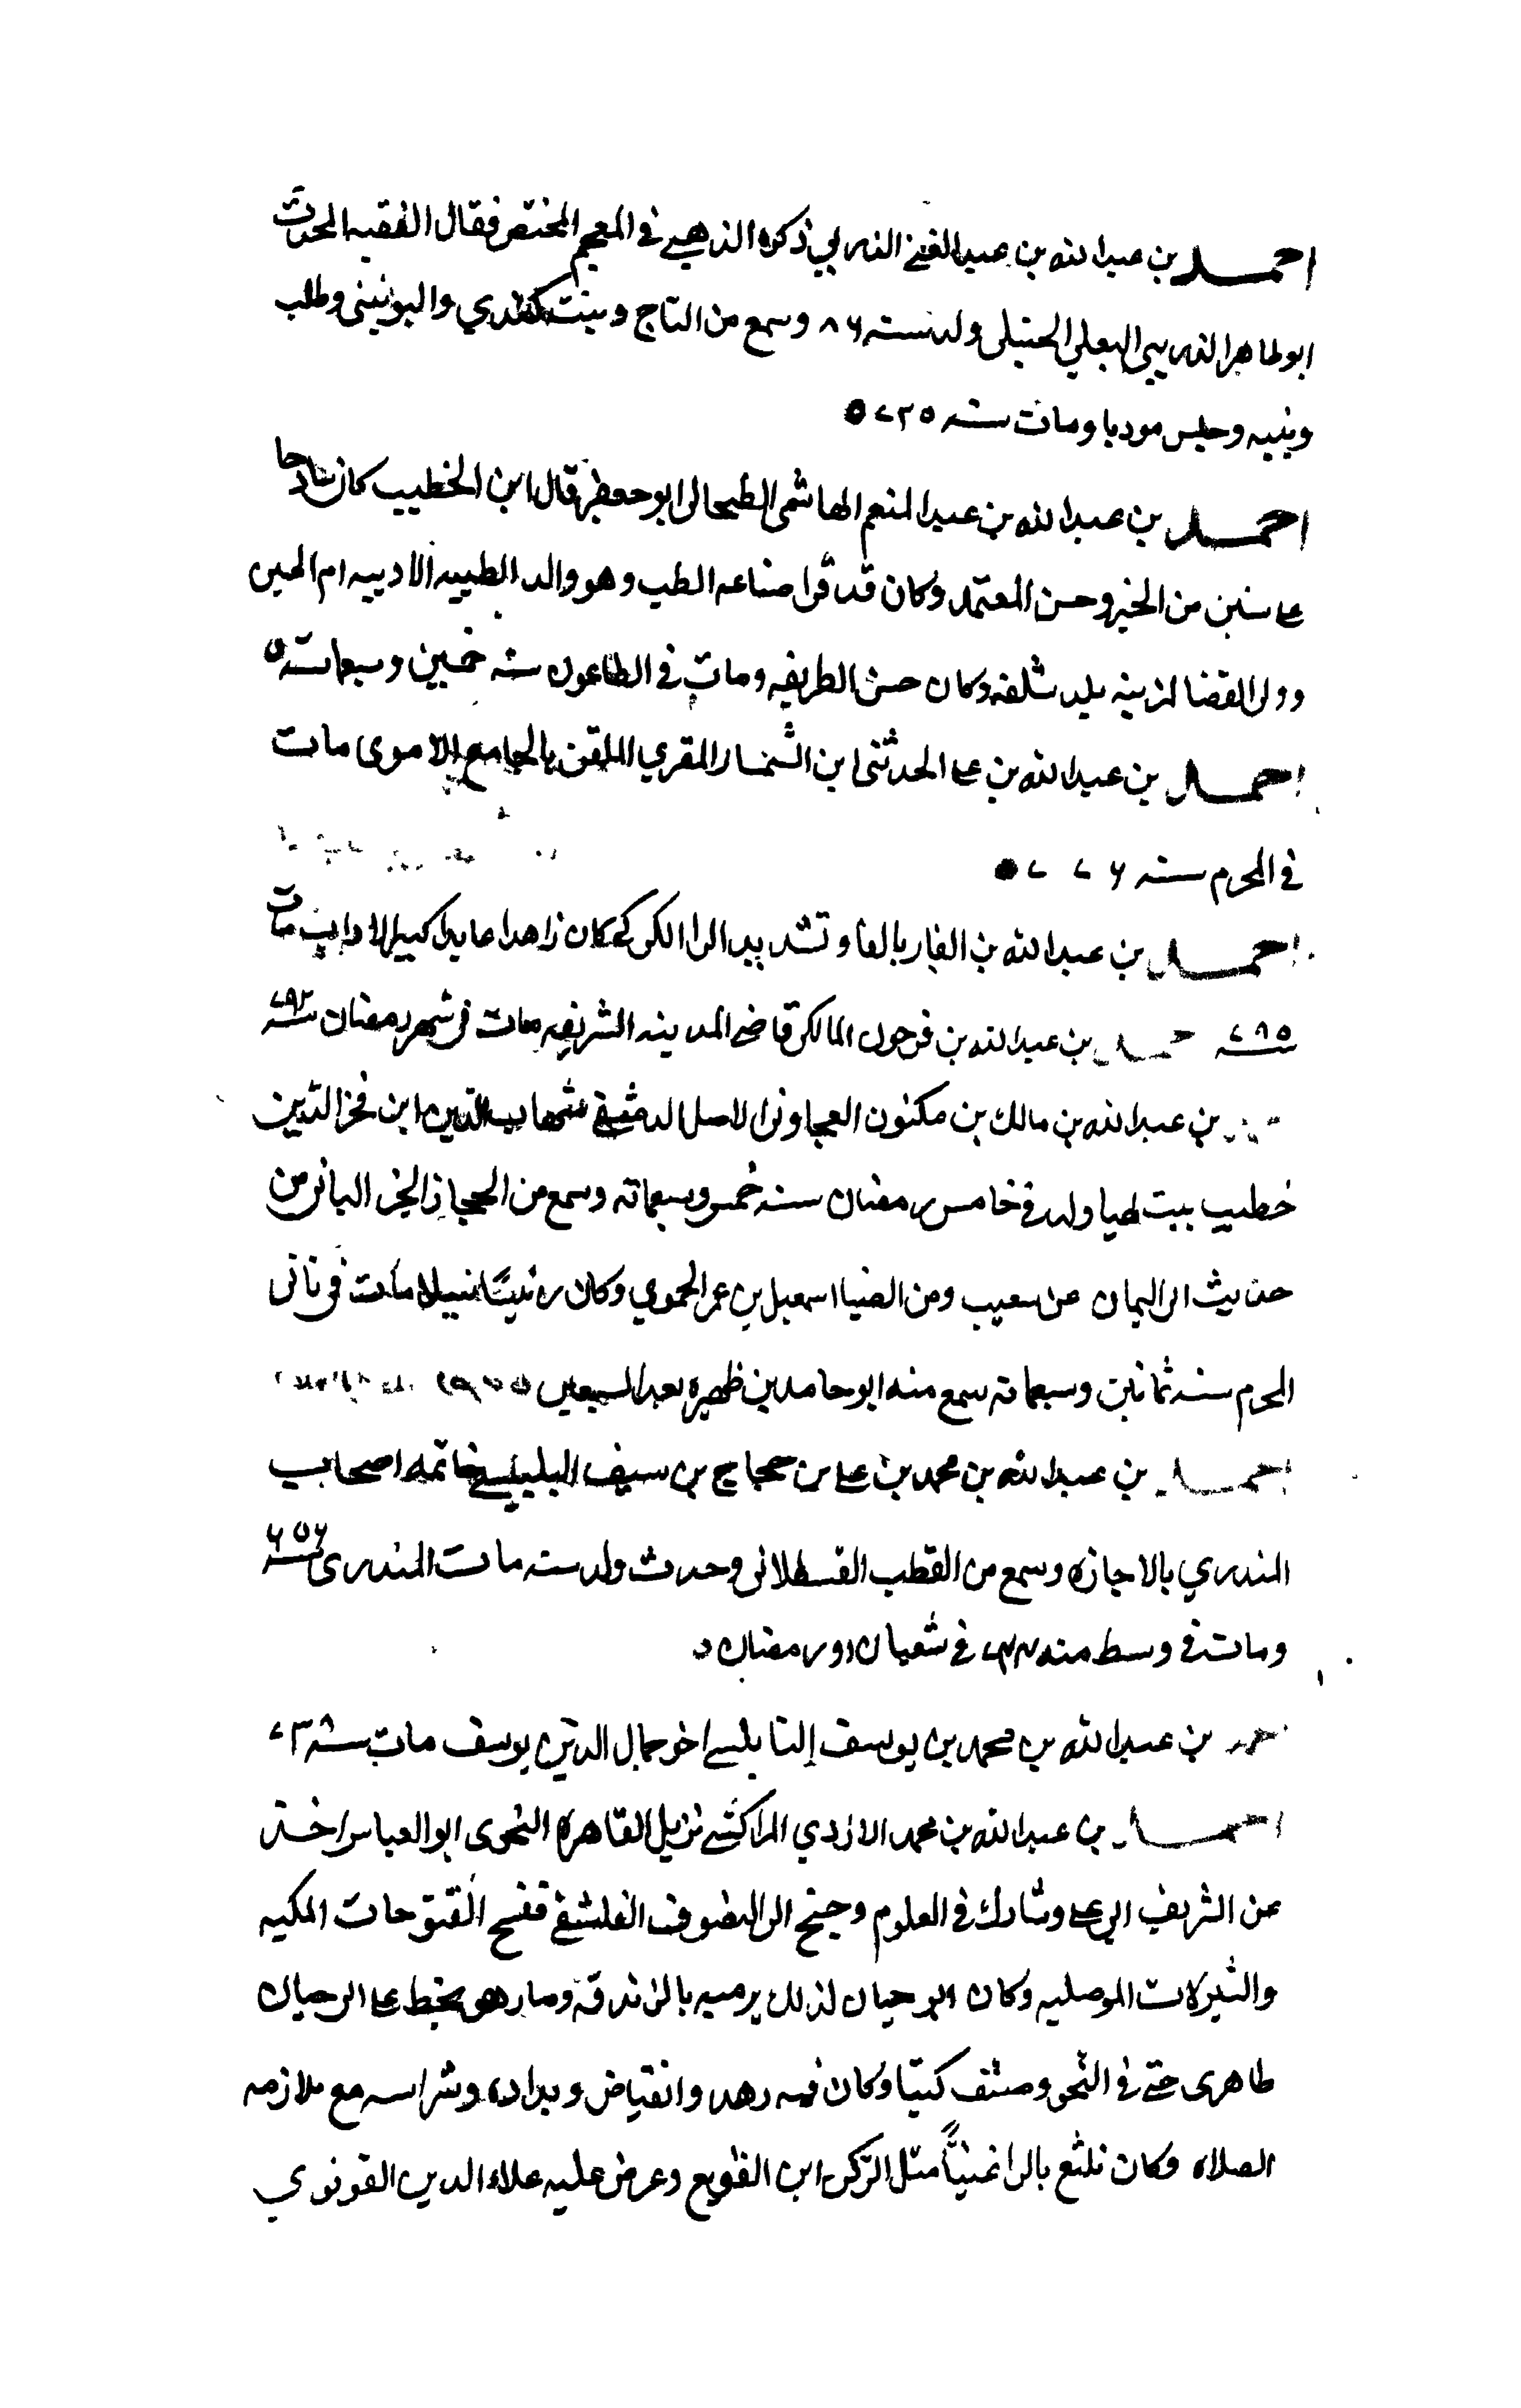 احمد بن عبد الله بن عبد الغني الذريبي ذكره الذهبي في المعجم المختص فقال الفقيه المحدث
ابو طاهر الذريبي البعلي الحنبلي ولد سنه ٨٦ وسمع من التاج وبنت كندي واليونيني وطلب
وبنيه وجلس مودبا ومات سنه ٧٣٥
احمد بن عبد الله بن عبد المنعم الهاشمي الطنجالي ابو جعفر قال ابن الخطيب كان
على سنن من الخير وحسن المعتمد وكان قد قرا صناعه الطب وهو والد الطبيبه الاديبه ام الحسن
وولى القضا ببلد وكان حسن الطريقه ومات في الطاعون سنه خمسين وسبعمائة
احمد بن عبد الله بن على ابن المقري الملقن بالجامع الاموى مات
في المحرم سنه ٧٧٦
احمد بن عبد الله بن الفار بالفا وتشديد الرا الكركي كان زاهدا عابدا كبير مات
سنه ٧٩٥ احمد بن عبد الله بن فرحون المالكى قاضي المدينه الشريفه مات في شهر رمضان سنه ٧٩٢
بن عبد الله بن مالك بن مكنون العجلونى الاصل الدمشقي شهاب الدين ابن فخر الدين
خطيب بيت لهيا ولد في خامس رمضان سنه خمس وسبعمائه وسمع من الحجار الجزء الثانى من
حديث ابى اليمان عن شعيب ومن الضيا اسمعيل بن عمر الحموي وكان رئيسًا نبيلا مات في ثانى
المحرم سنه ثمانين وسبعمائه سمع منه ابو حامد بن ظهيره بعد السبعين
احمد بن عبد الله بن محمد بن على بن حجاج بن سيف البلبيسي خاتمه اصحاب
المنذري بالاجازه وسمع من القطب القسطلانى وحدث ولد سنه مات المنذرى سنه ٦٥٦
ومات في وسط سنه في شعبان او رمضان
احمد بن عبد الله بن محمد بن يوسف النابلسي اخو جمال الدين يوسف مات سنه
احمد بن عبد الله بن محمد الازدي المراكشي نزيل القاهره النحوى ابو العباس اخذ
عن الشريف ابي على وشارك في العلوم وجنح الى التصوف الفلسفي فنسخ الفتوحات المكيه
والتنزلات الموصليه وكان ابو حيان لذلك يرميه بالزندقه وصار هو يحط على ابى حيان
ظاهرى حتى في النحو وصنف كتبا وكان فيه زهد وانقباض وشراسه مع ملازمه
الصلاه وكان يلثغ بالرا غينًا مثل الركن ابن القويع وعرض عليه علاء الدين القونوي